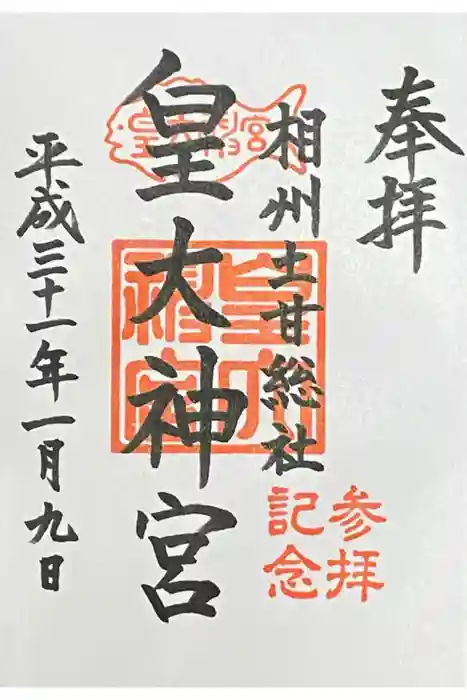 奉拝
相州土甘総社
皇大神宮
平成三十一年一月九日
皇大神宮
皇大神宮
参拝
記念